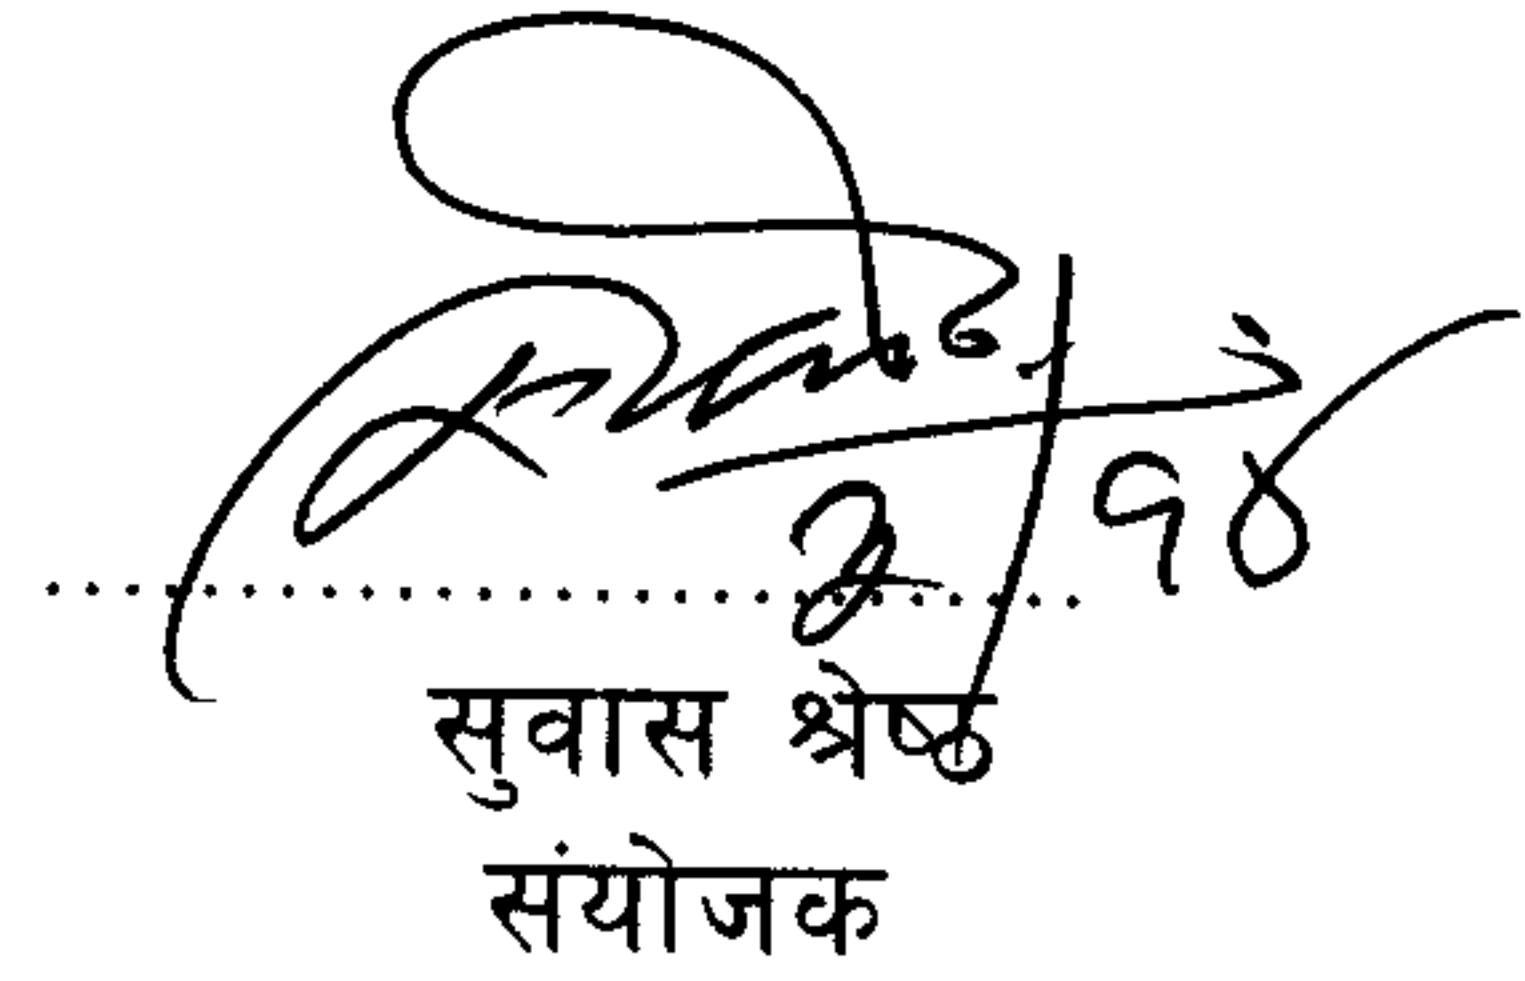 ३/१४
सुवास श्रेष्ठ
संयोजक